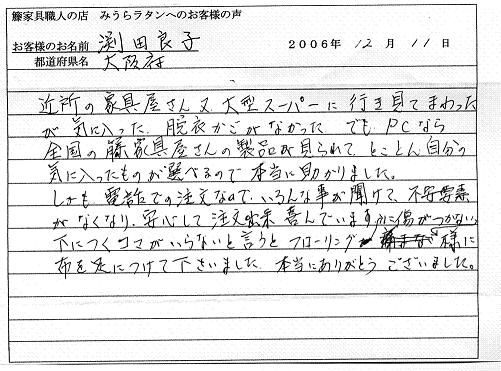 籐家具職人の店　みうらラタンへのお客様の声
お客様のお名前 渕田良子 2006年 12月 11日
都道府県名 大阪府
近所の家具屋さん又大型スーパーに行き見てまわった
が気に入った脱衣かごがなかった でもPCなら
全国の籐家具屋さんの製品が見られて とことん自分の
気に入ったものが選べるので本当に助かりました。
しかも電話での注文なので、いろんな事が聞けて、不安要素
がなくなり、安心して注文出来喜んでいます
下につくコマがいらないと言うとフローリングに傷がつかない様に
布を足につけて下さいました。本当にありがとうございました。